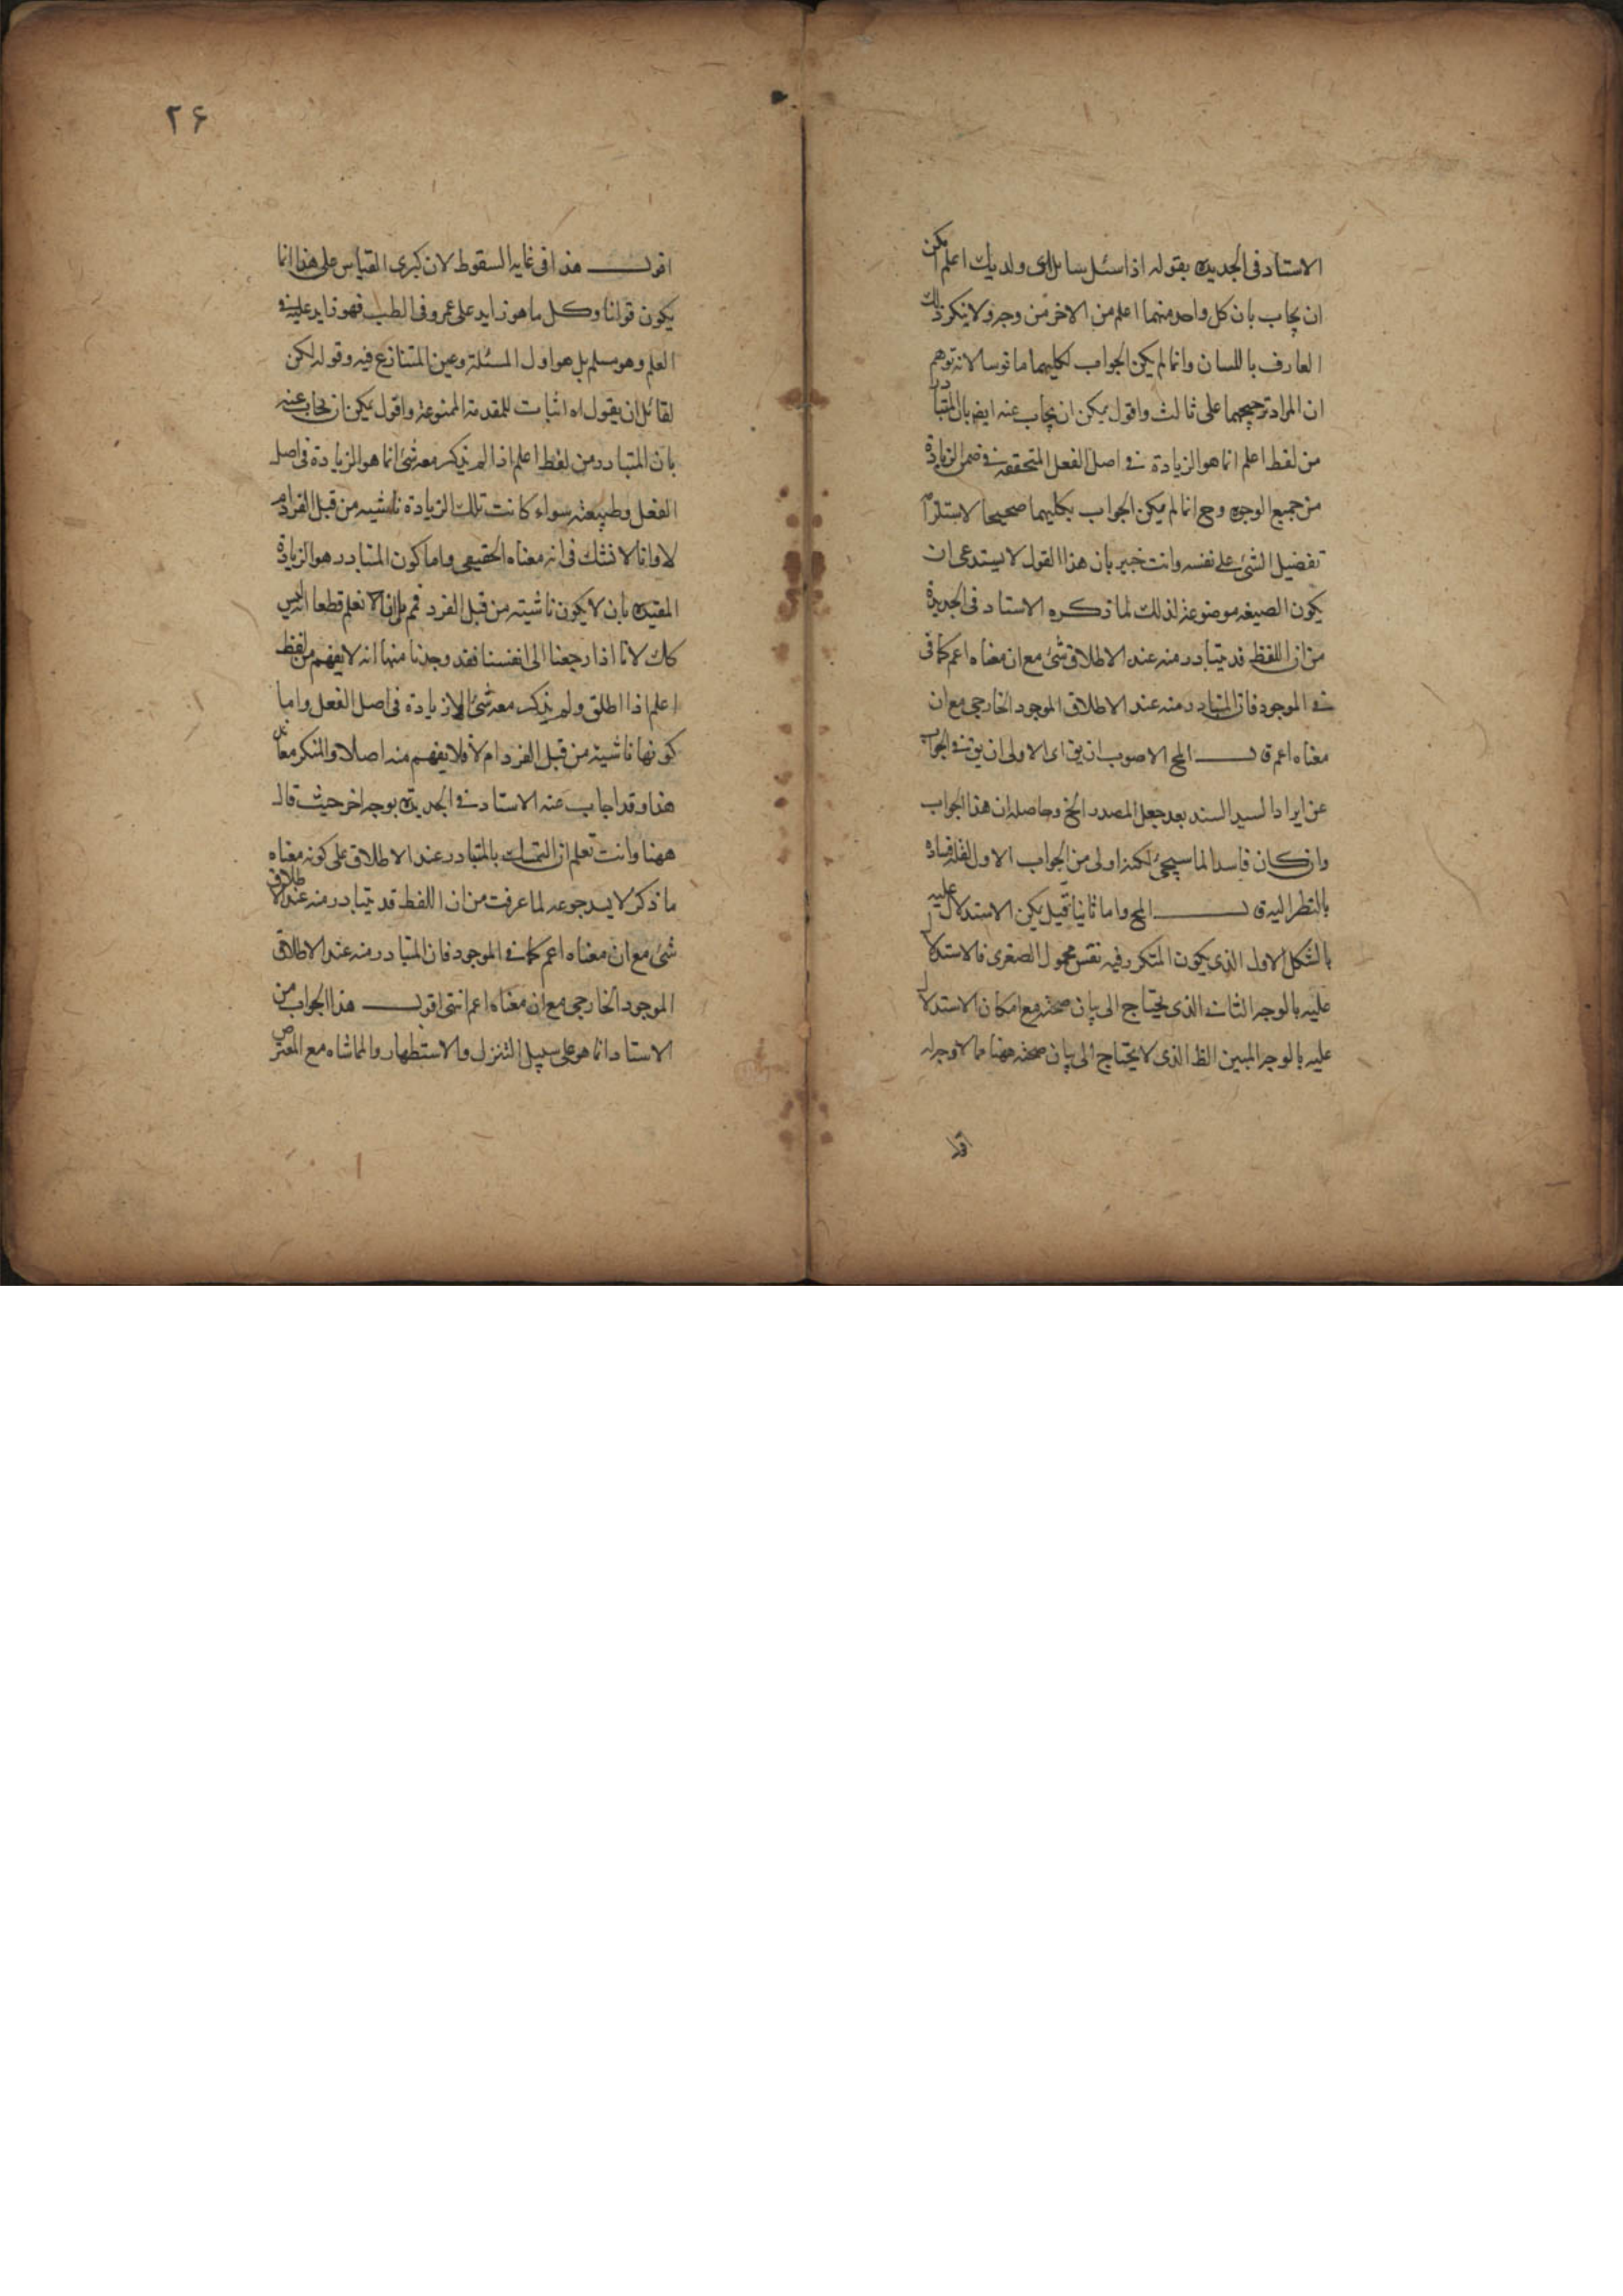 الاستاد فى الجديده بقوله اذا سئل سايل اى ولديك اعلم امكن
ان يجاب بان كل واحد منهما اعلم من الاخر من وجه ولا ينكر ذلك
العارف باللسان وانما لم يكن الجواب لكليهما مانوسا لانه توهم
ان المراد ترجيحهما على ثالث واقول يمكن ان يجاب عنه ايض بان المتبادر
من لفظ اعلم انما هو الزيادة فى اصل الفعل المتحققه فى ضمن الزيادة
من جميع الوجوه وح انما لم يكن الجواب بكليهما صحيحا لاستلزام
تفضيل الشئ على نفسه وانت خبير بان هذا القول لا يستدعى ان
يكون الصيغه موضوعة لذلك لما ذكره الاستاد فى الجديدة
من ان اللفظ قد يتبادر منه عند الاطلاق شئ مع ان معناه اعم كما فى
فى الموجود فان المتبادر منه عند الاطلاق الموجود الخارجى مع ان
معناه اعم قـــــال المح الاصوب ان يق اى الاولى ان يق فى الجواب
عن ايراد السيد السند بعد جعل المصدر الخ وحاصله ان هذا الجواب
وان كان فاسدا لما سيجئ لكنه اولى من الجواب الاول لقلة فساده
بالنظر اليه قـــــال المح واما ثانيا قيل يمكن الاستدلال عليه
بالشكل الاول الذى يكون المتكرر فيه نفس محمول الصغرى فالاستدلال
عليه بالوجه الثانى الذى يحتاج الى بيان صحته مع امكان الاستدلال
عليه بالوجه المبين الظ الذى لا يحتاج الى بيان صحته ههنا مما لا وجه له
اقول
۲۶
اقول هذا فى غاية السقوط لان كبرى القياس على هذا انما
يكون قولنا وكل ما هو زايد على عمرو فى الطب فهو زايد عليه فى
العلم وهو مسلم بل هو اول المسئلة وعين المتنازع فيه وقوله لكن
لقائل ان يقول اه اثبات للمقدمة الممنوعة واقول يمكن ان يجاب عنه
بان المتبادر من لفظ اعلم اذا لم يذكر معه شئ انما هو الزيادة فى اصل
الفعل وطبيعته سواء كانت تلك الزيادة ناشيه من قبل الفرد ام
لا وانا لا نشك فى انه معناه الحقيقى واما كون المتبادر هو الزيادة
المقيده بان لا يكون ناشية من قبل الفرد فمم بل انا لا نعلم قطعا انه ليس
كك لانا اذا رجعنا الى انفسنا فقد وجدنا منها انه لا يفهم من لفظ
اعلم اذا اطلق ولم يذكر معه شئ الا زيادة فى اصل الفعل واما
كونها ناشية من قبل الفرد ام لا فلا يفهم منه اصلا والمنكر معاند
هذا وقد اجاب عنه الاستاد فى الجديدة بوجه اخر حيث قال
ههنا وانت تعلم ان التمسك بالمتبادر عند الاطلاق على كونه معناه
ما ذكر لا يسد جوعه لما عرفت من ان اللفظ قد يتبادر منه عند الاطلاق
شئ مع ان معناه اعم كما فى الموجود فان المتبادر منه عند الاطلاق
الموجود الخارجى مع ان معناه اعم انتهى اقول هذا الجواب من
الاستاد انما هو على سبيل التنزل والاستظهار والمماشاه مع المعترض